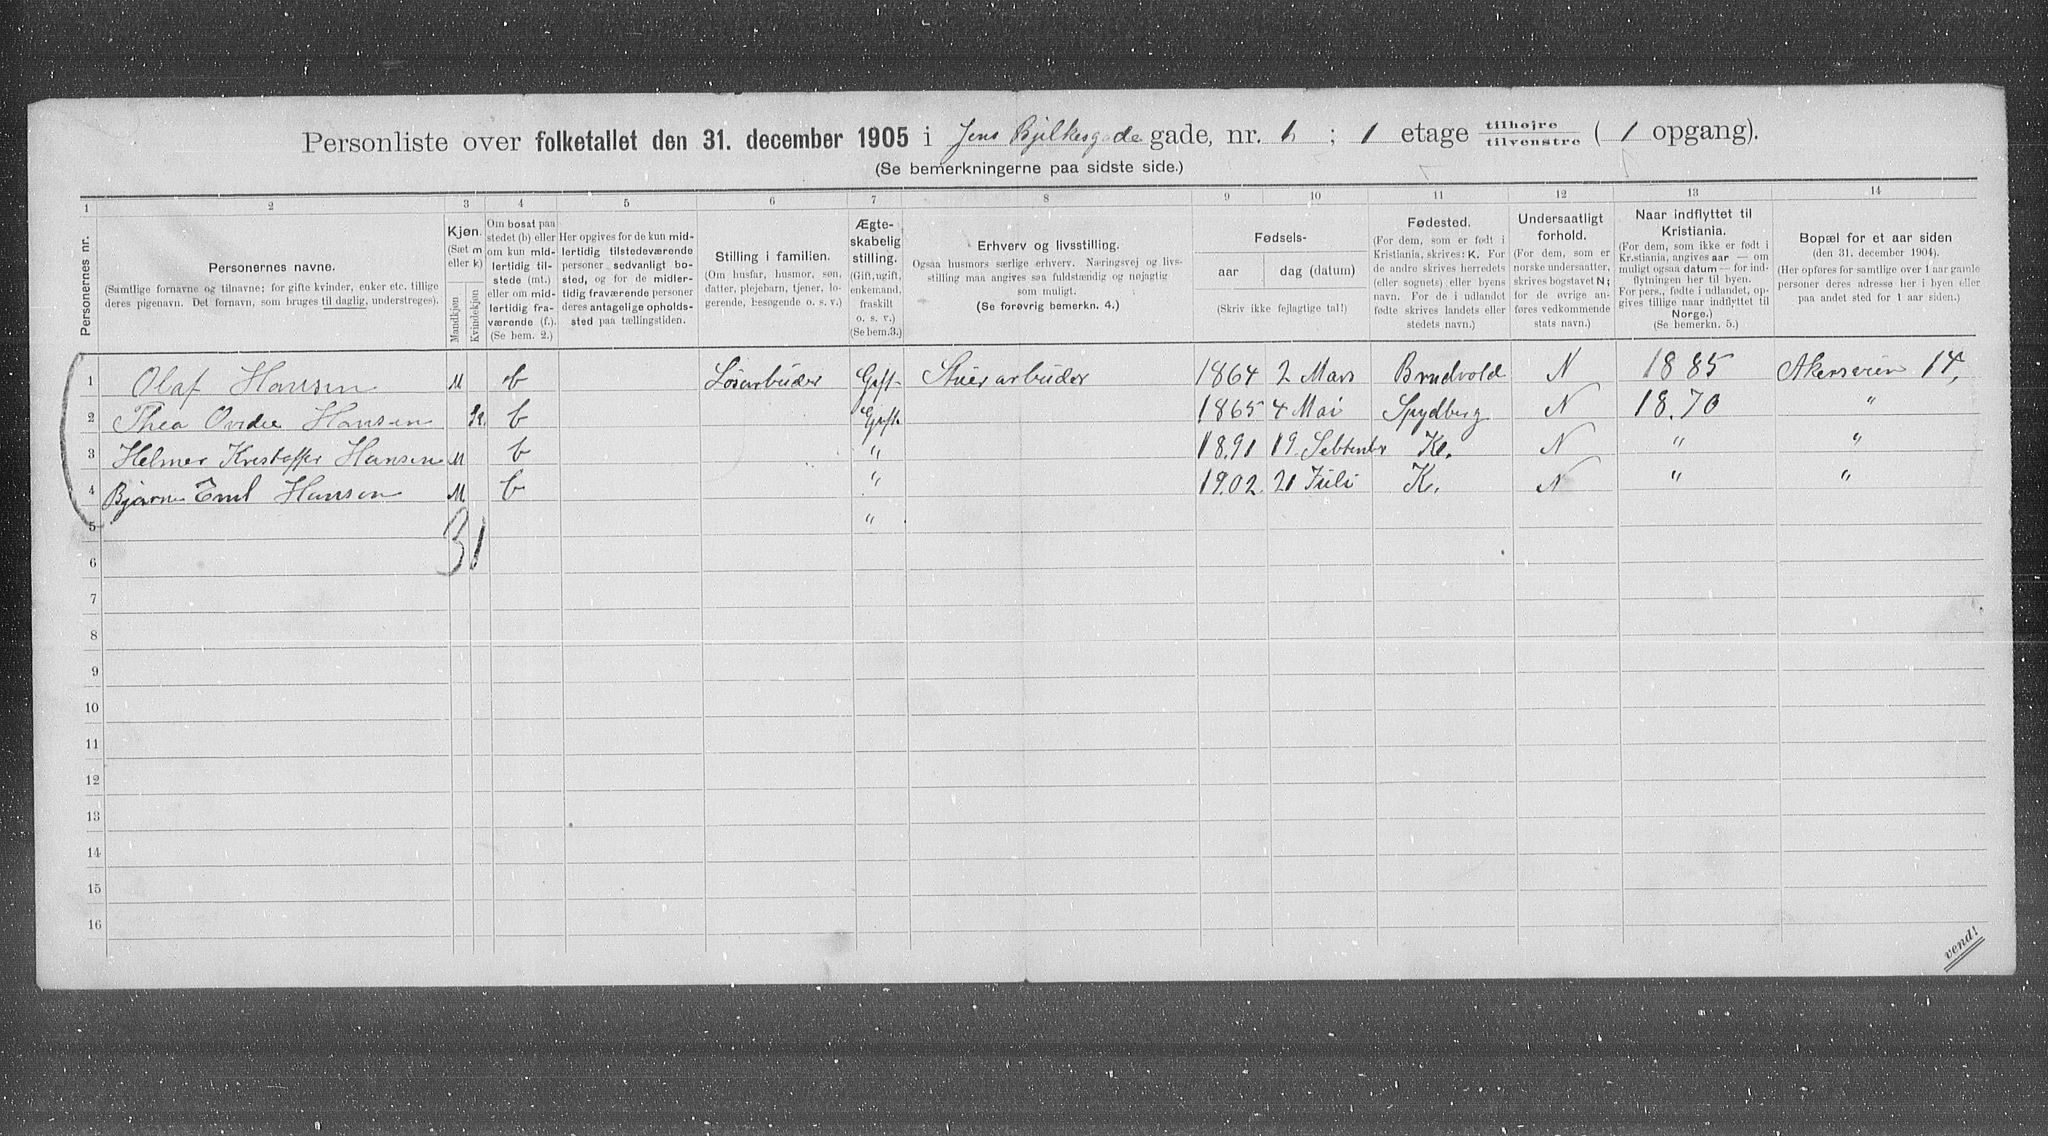 Personliste over folketallet den 31. december 1905 i Jens Bjelkesgade gade, nr. 6 ; 1 etage tilhøjre tilvenstre ( 1 opgang).
(Se bemerkningerne paa sidste side.)
1 2 3 4 5 6 7 8 9 10 11 12 13 14
Personernes nr.
Personernes navne.
(Samtlige fornavne og tilnavne; for gifte kvinder, enker etc. tillige
deres pigenavn. Det fornavn, som bruges til daglig, understreges).
Kjøn.
(Sæt m
eller k)
Mandkjøn
Kvindekjøn
Om bosat paa
stedet (b) eller
om kun mid-
lertidig til-
stede (mt.)
eller om mid-
lertidig fra-
værende (f.).
(Se bem. 2.)
Her opgives for de kun mid-
lertidig tilstedeværende
personer sedvanligt bo-
sted, og for de midler-
tidig fraværende personer
deres antagelige opholds-
sted paa tællingstiden.
Stilling i familien.
(Om husfar, husmor, søn,
datter, plejebarn, tjener, lo-
gerende, besøgende o. s. v.)
Ægte-
skabelig
stilling.
(Gift, ugift,
enkemand,
fraskilt
o. s. v.)
(Se bem.3.)
Erhverv og livsstilling.
Ogsaa husmors særlige erhverv. Næringsvej og livs-
stilling maa angives saa fuldstændig og nøjagtig
som muligt.
(Se forøvrig bemerkn. 4.)
Fødsels-
aar dag (datum)
(Skriv ikke fejlagtige tal!)
Fødested.
(For dem, som er født i
Kristiania, skrives: K. For
de andre skrives herredets
(eller sognets) eller byens
navn. For de i udlandet
fødte skrives landets eller
stedets navn.)
Undersaatligt
forhold.
(For dem, som er
norske undersaatter,
skrives bogstavet N;
for de øvrige an-
føres vedkommende
stats navn.)
Naar indflyttet til
Kristiania.
(For dem, som ikke er født i
Kristiania, angives aar — om
muligt ogsaa datum — for ind-
flytningen her til byen.
For pers., fødte i udlandet, op-
gives tillige naar indflyttet til
Norge.)
(Se bemerkn. 5.)
Bopæl for et aar siden
(den 31. december 1904).
(Her opføres for samtlige over 1 aar gamle
personer deres adresse her i byen eller
paa andet sted for 1 aar siden.)
1 Olaf Hansen M b Løsarbüder Gift 1864 2 Mars Brudvold N 1885 14,
2 Thea Hansen K. b Gift 1865 4 Mai Spydberg N 18.70 "
3 Helmer Kristoffer Hansen M b " 18.91 19. Sebtember K. N " "
4 Bjarne Emil Hansen M b " 19.02. 21 Juli K. N " "
5 "
3 1
6
7
8
9
10
11
12
13
14
15
16
vend!